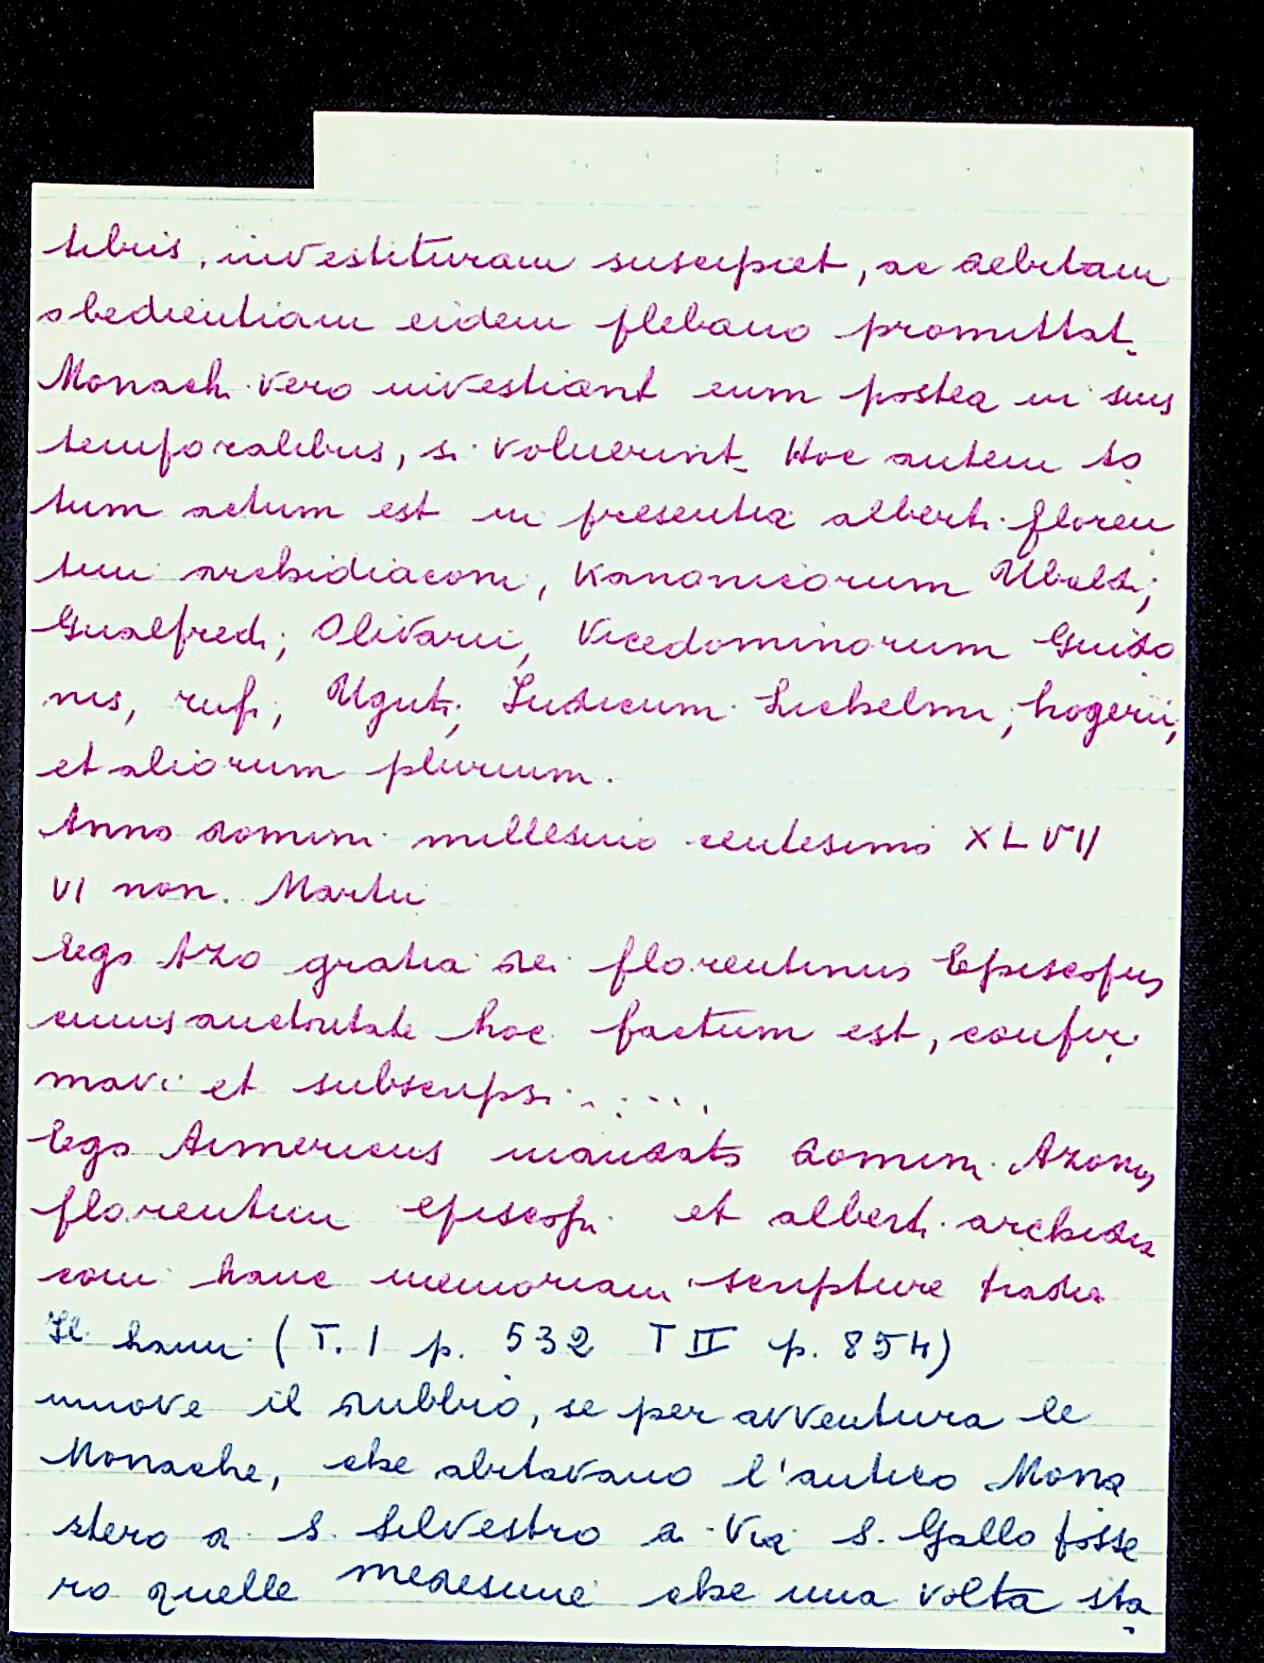 tibus, investituram suscipiet, ac debitam
obedientiam eidem plebano promittat.
Monachi vero investiant eum postea in suis
temporalibus, si voluerint. Hoc autem to
tum actum est in presentia alberti floren
tini archidiaconi, Kanonicorum Ubaldi;
Gualfredi; Olivarii, Vicedominorum Guido
nis, rufi; Uguti; Iudicum, rogerii,
et aliorum plurium.
Anno domini millesimo centesimo XLVII
VI non. Martii
Ego Azo gratia dei florentinus Episcopus
cuius auctoritate hoc factum est, confir
mavi et subscripsi.....
Ego Aimericus mandato domini Azonis
florentini episcopi et alberti archidia
coni hanc memoriam scripture tradidi
Il Lami (T. I p. 532 T II p. 854)
muove il dubbio, se per avventura le
Monache, che abitavano l'antico Mona
stero di S. Silvestro a Via S. Gallo fosse
ro quelle medesime che una volta sta